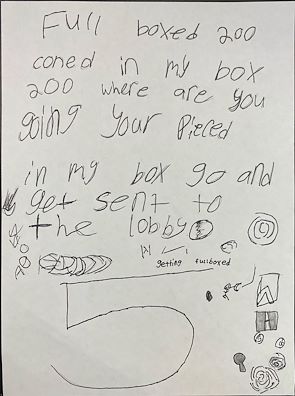 Full boxed 200
coned in my box
200 where are you
going your Pieced
in my box go and
get sent to
the lobby
200
getting fullboxed
5